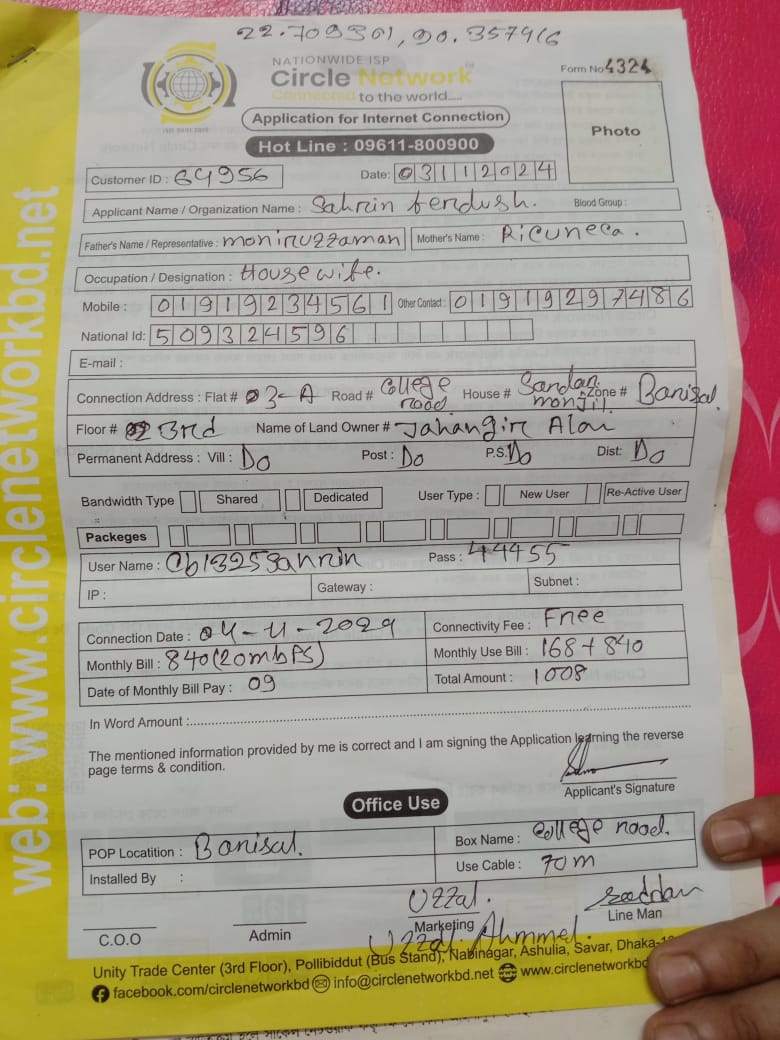 22.709301, 90.357916
NATIONWIDE ISP
Circle Network
Connected to the world....
Form No 4324
Application for Internet Connection
Hot Line : 09611-800900
Photo
Customer ID : 64956 Date: 03112024
Applicant Name / Organization Name : Sahrin ferdush. Blood Group :
Father's Name / Representative : moniruzzaman Mother's Name : Ricuneca.
Occupation / Designation : House wife.
Mobile : 01919234561 Other Contact : 01919297486
National Id: 509324596
E-mail :
Connection Address : Flat # 3-A Road # College road House # Sardar monjil. Zone # Barisal.
Floor # 3rd Name of Land Owner # Jahangir Alam
Permanent Address : Vill : Do Post : Do P.S: Do Dist: Do
Bandwidth Type Shared Dedicated User Type : New User Re-Active User
Packeges
User Name : Cb1325Sahrin Pass : 44455
IP : Gateway : Subnet :
Connection Date : 04-11-2024 Connectivity Fee : Free
Monthly Bill : 840(20mbPS) Monthly Use Bill : 168+840
Date of Monthly Bill Pay : 09 Total Amount : 1008
In Word Amount :
The mentioned information provided by me is correct and I am signing the Application learning the reverse
page terms & condition.
Applicant's Signature
Office Use
POP Locatition : Barisal. Box Name : College road.
Installed By : Use Cable : 70m
Uzzal.
C.O.O Admin Marketing Line Man
Uzzal Ahmmed.
Unity Trade Center (3rd Floor), Pollibiddut (Bus Stand), Nabinagar, Ashulia, Savar, Dhaka-
facebook.com/circlenetworkbd info@circlenetworkbd.net www.circlenetworkbd
web: www.circlenetworkbd.net